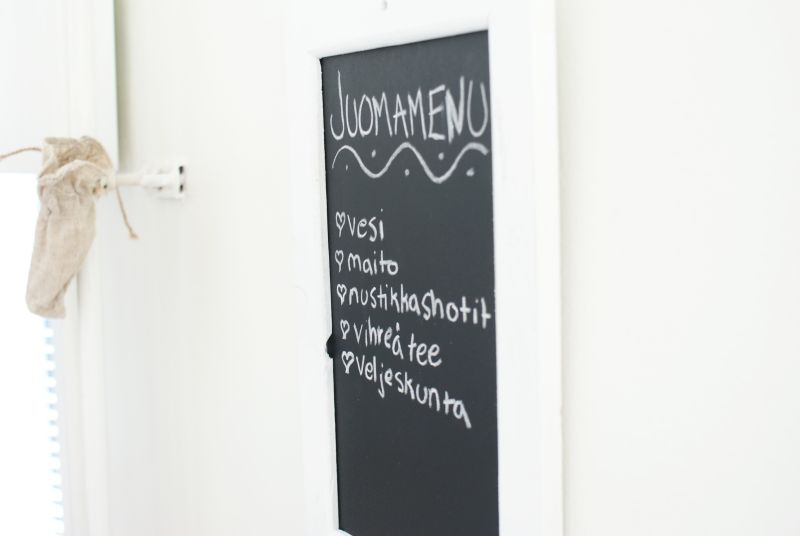 JUOMAMENU
vesi
maito
mustikkashotit
vihreä tee
veljeskunta